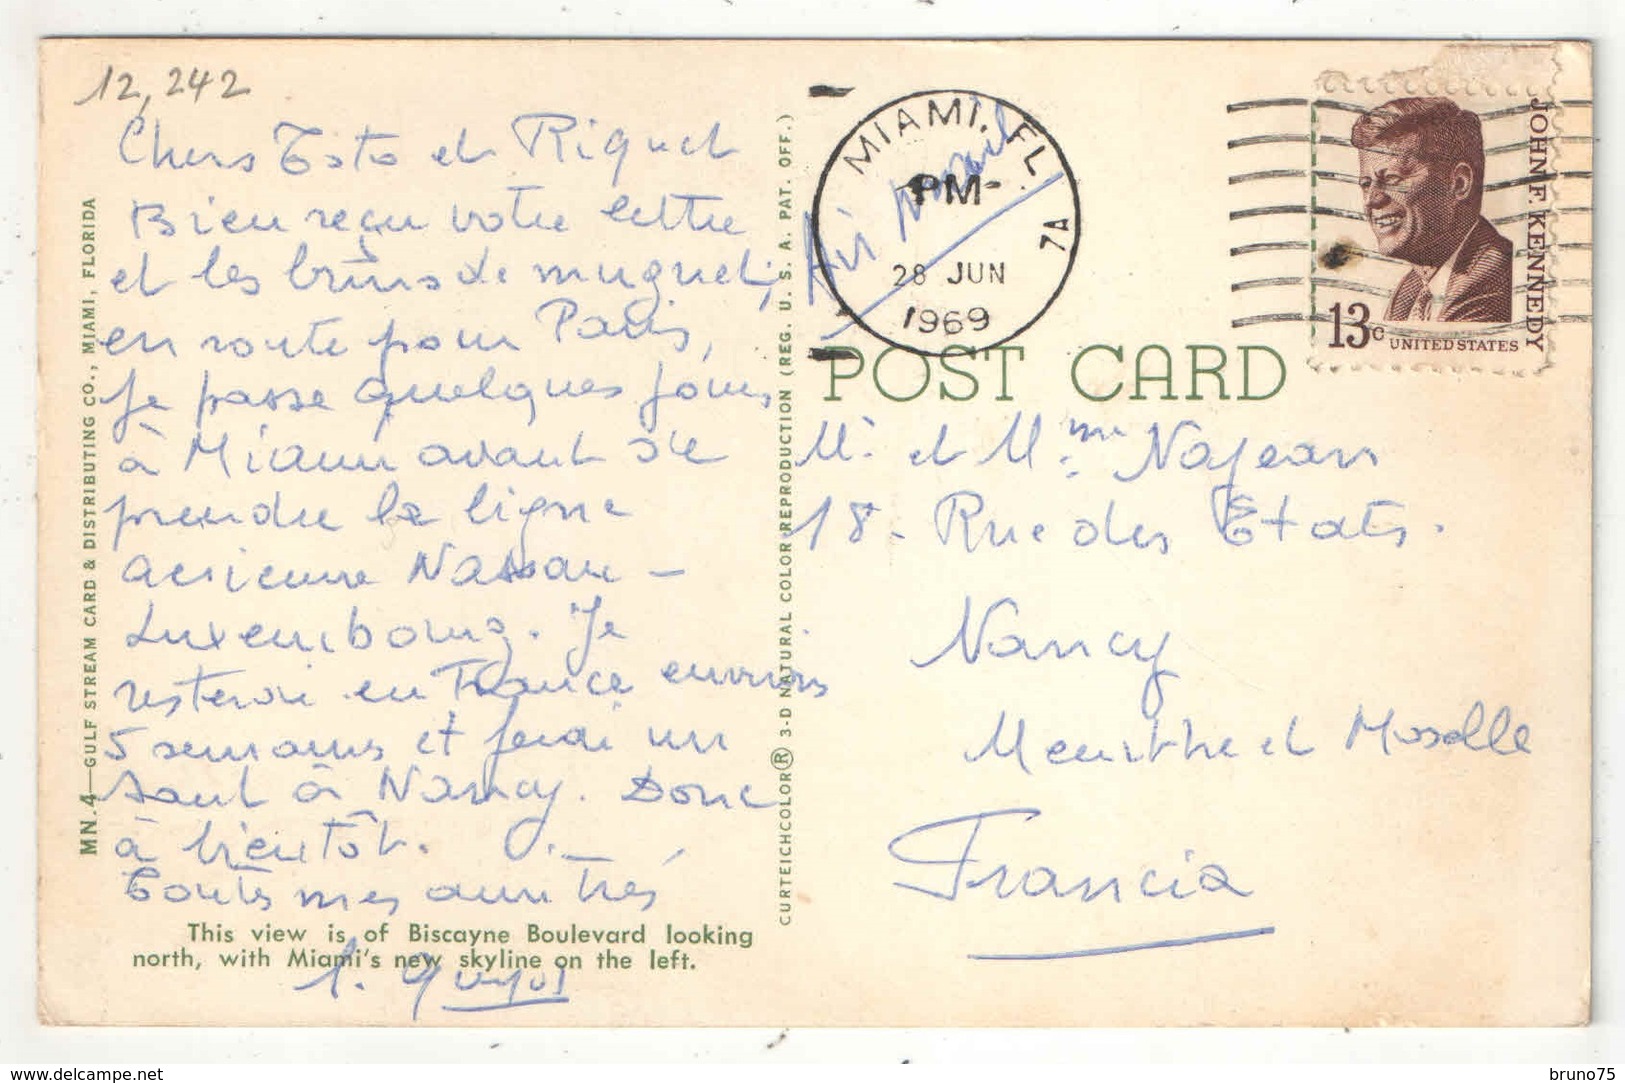 12,242
Chers Toto et Riquet
Bien reçu votre lettre
et les brins de muguet;
en route pour Paris,
je passe quelques jours
à Miami avant de
prendre la ligne
aérienne Nassau –
Luxembourg. Je
resterai en France environ
5 semaines et ferai un
saut à Nancy. Donc
à bientôt.
Toutes mes amitiés
This view is of Biscayne Boulevard looking
north, with Miami's new skyline on the left.
MN.4—GULF STREAM CARD & DISTRIBUTING CO., MIAMI, FLORIDA
CURTEICHCOLOR® 3-D NATURAL COLOR REPRODUCTION (REG. U. S. A. PAT. OFF.)
Air mail
MIAMI, FL
PM
7A
28 JUN
1969
JOHN F. KENNEDY
13c UNITED STATES
POST CARD
Mr et Mme Najean
18 - Rue des Etats.
Nancy
Meurthe et Moselle
Francia
www.delcampe.net
bruno75